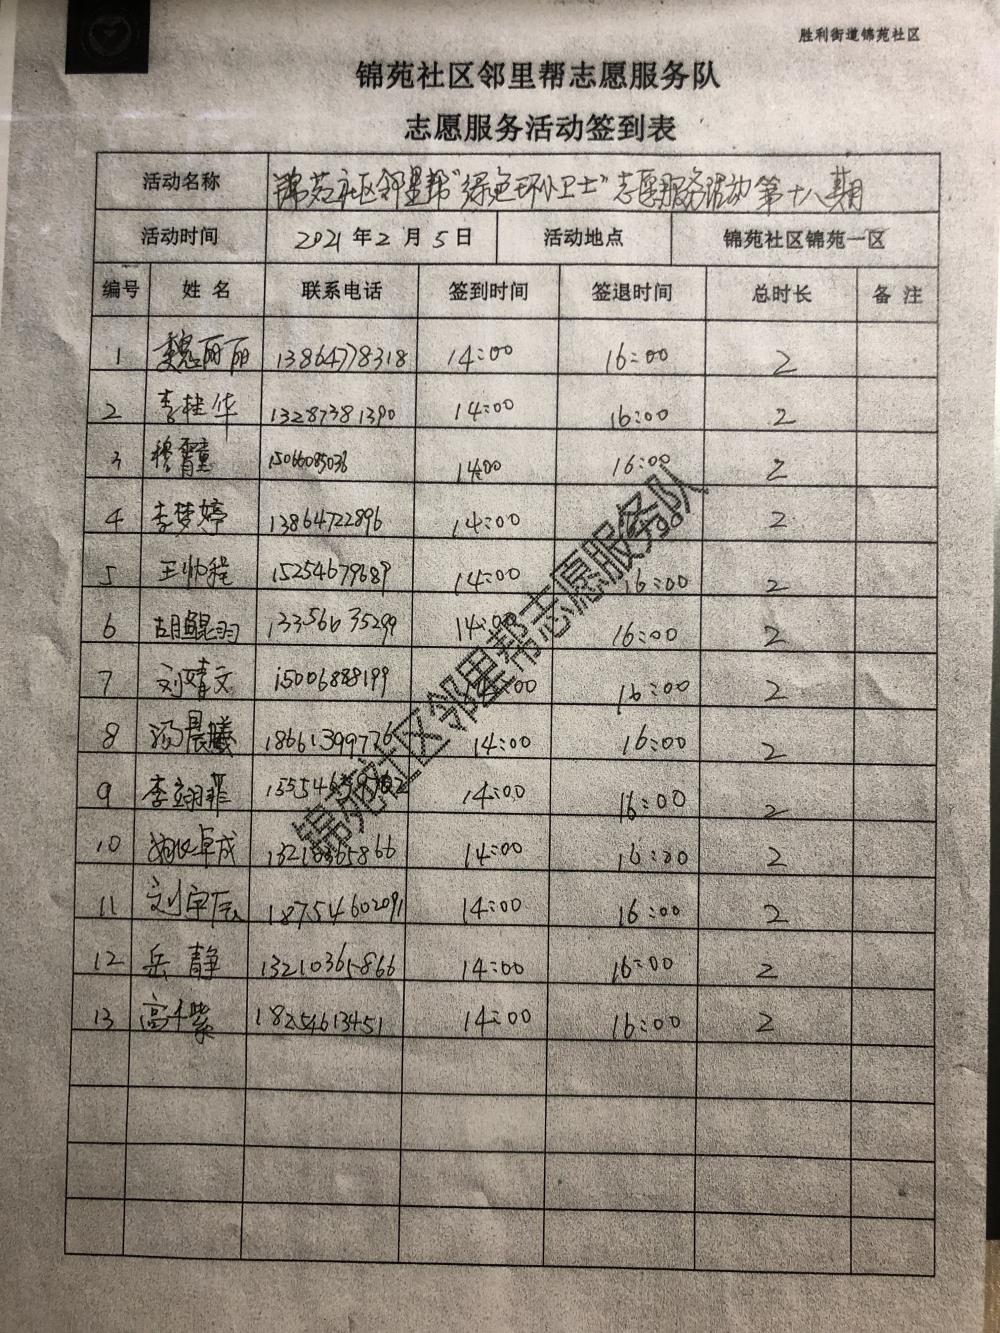 胜利街道锦苑社区
锦苑社区邻里帮志愿服务队
志愿服务活动签到表
活动名称 锦苑社区邻里帮“绿色环保小卫士”志愿服务活动第十八期
活动时间 2021年2月5日 活动地点 锦苑社区锦苑一区
编号 姓名 联系电话 签到时间 签退时间 总时长 备注
1 魏丽丽 13864778318 14:00 16:00 2
2 李桂华 13287381390 14:00 16:00 2
3 穆霄童 14:00 16:00 2
4 李梦婷 13864722896 14:00 2
5 王帅程 15254679689 14:00 16:00 2
6 胡鲲羽 14:00 16:00 2
7 刘婧文 15006888199 16:00 2
8 汤晨曦 14:00 16:00 2
9 李翊菲 14:00 16:00 2
10 卓成 13210365866 14:00 16:00 2
11 刘宇辰 18754602091 14:00 16:00 2
12 岳静 13210365866 14:00 16:00 2
13 高千紫 18254613451 14:00 16:00 2
锦苑社区邻里帮志愿服务队